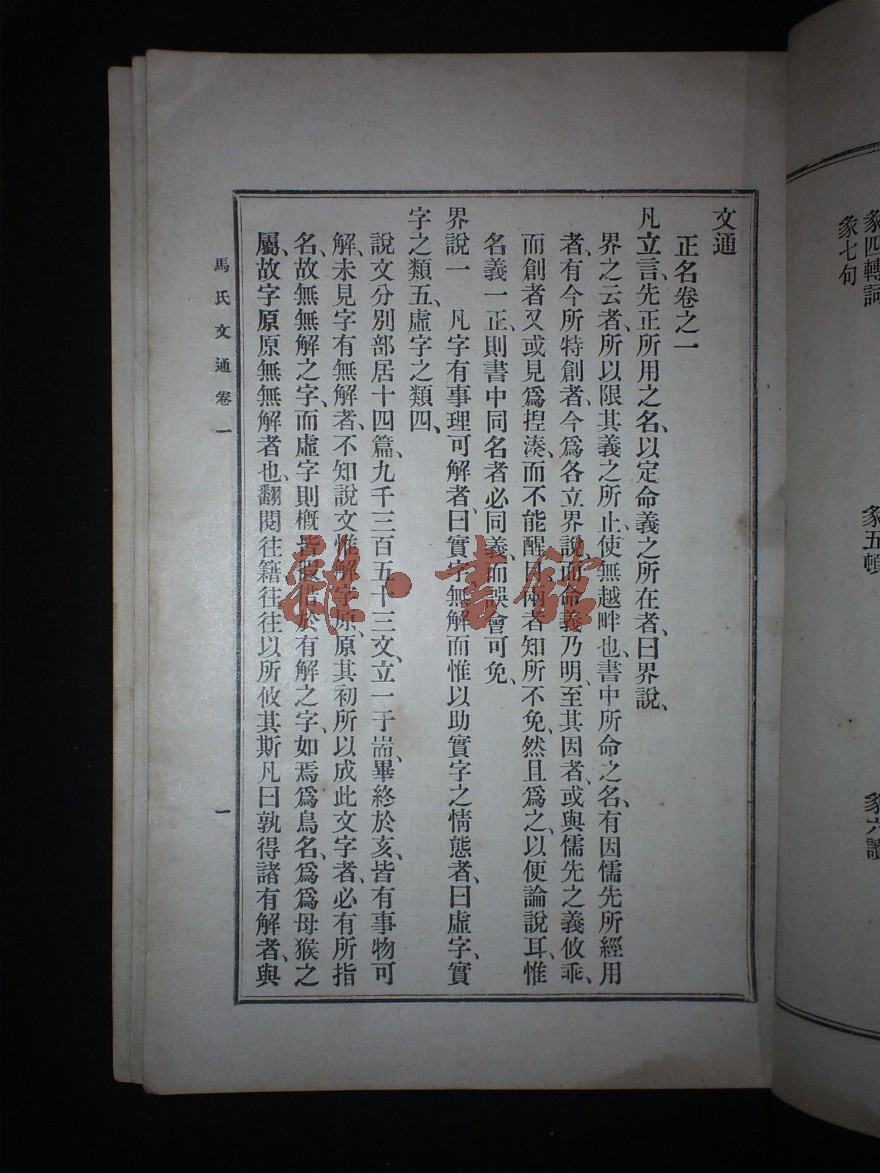 象四轉詞
象七句
象五頓
象六讀
文通
正名卷之一
凡立言、先正所用之名、以定命義之所在者、曰界說、
界之云者、所以限其義之所止、使無越畔也、書中所命之名、有因儒先所經用
者、有今所特創者、今為各立界說、而命義乃明、至其因者、或與儒先之義攸乖、
而創者又或見為揑湊、而不能醒目、兩者知所不免、然且為之、以便論說耳、惟
名義一正、則書中同名者必同義、而誤會可免、
界說一　凡字有事理可解者、曰實字、無解而惟以助實字之情態者、曰虛字、實
字之類五、虛字之類四、
說文分別部居十四篇、九千三百五十三文、立一于耑、畢終於亥、皆有事物可
解、未見字有無解者、不知說文惟解字原、原其初所以成此文字者、必有所指
名、故無無解之字、而虛字則概皆假借於有解之字、如焉為鳥名、為為母猴之
屬、故字原原無無解者也、翻閱往籍、往往以所攸其斯凡曰孰得諸有解者、與
馬氏文通卷一
一
雜·書館